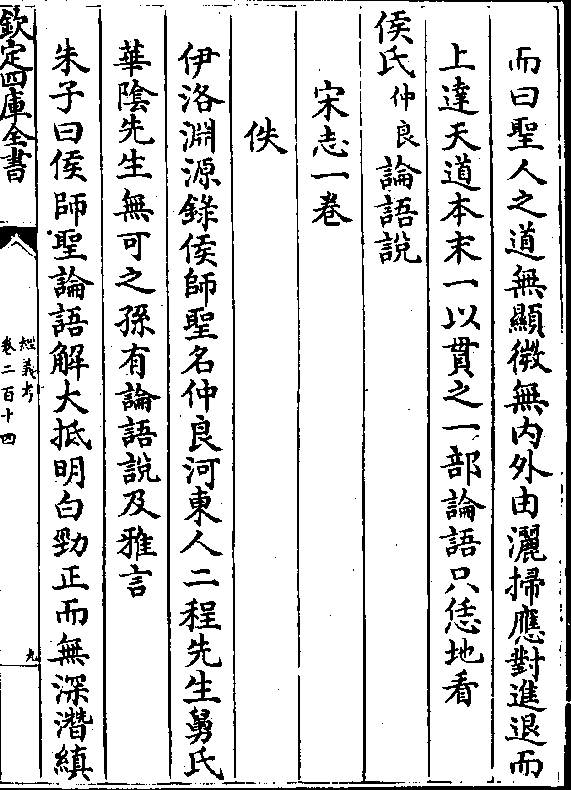 而曰聖人之道無顯微無内外由灑掃應對進退而
上達天道本末一以貫之一部論語只恁地看
侯氏仲良論語說
宋志一卷
佚
伊洛淵源錄侯師聖名仲良河東人二程先生舅氏
華陰先生無可之孫有論語說及雅言
朱子曰侯師聖論語解大抵明白勁正而無深潛縝
欽定四庫全書
經義考
卷二百十四
九